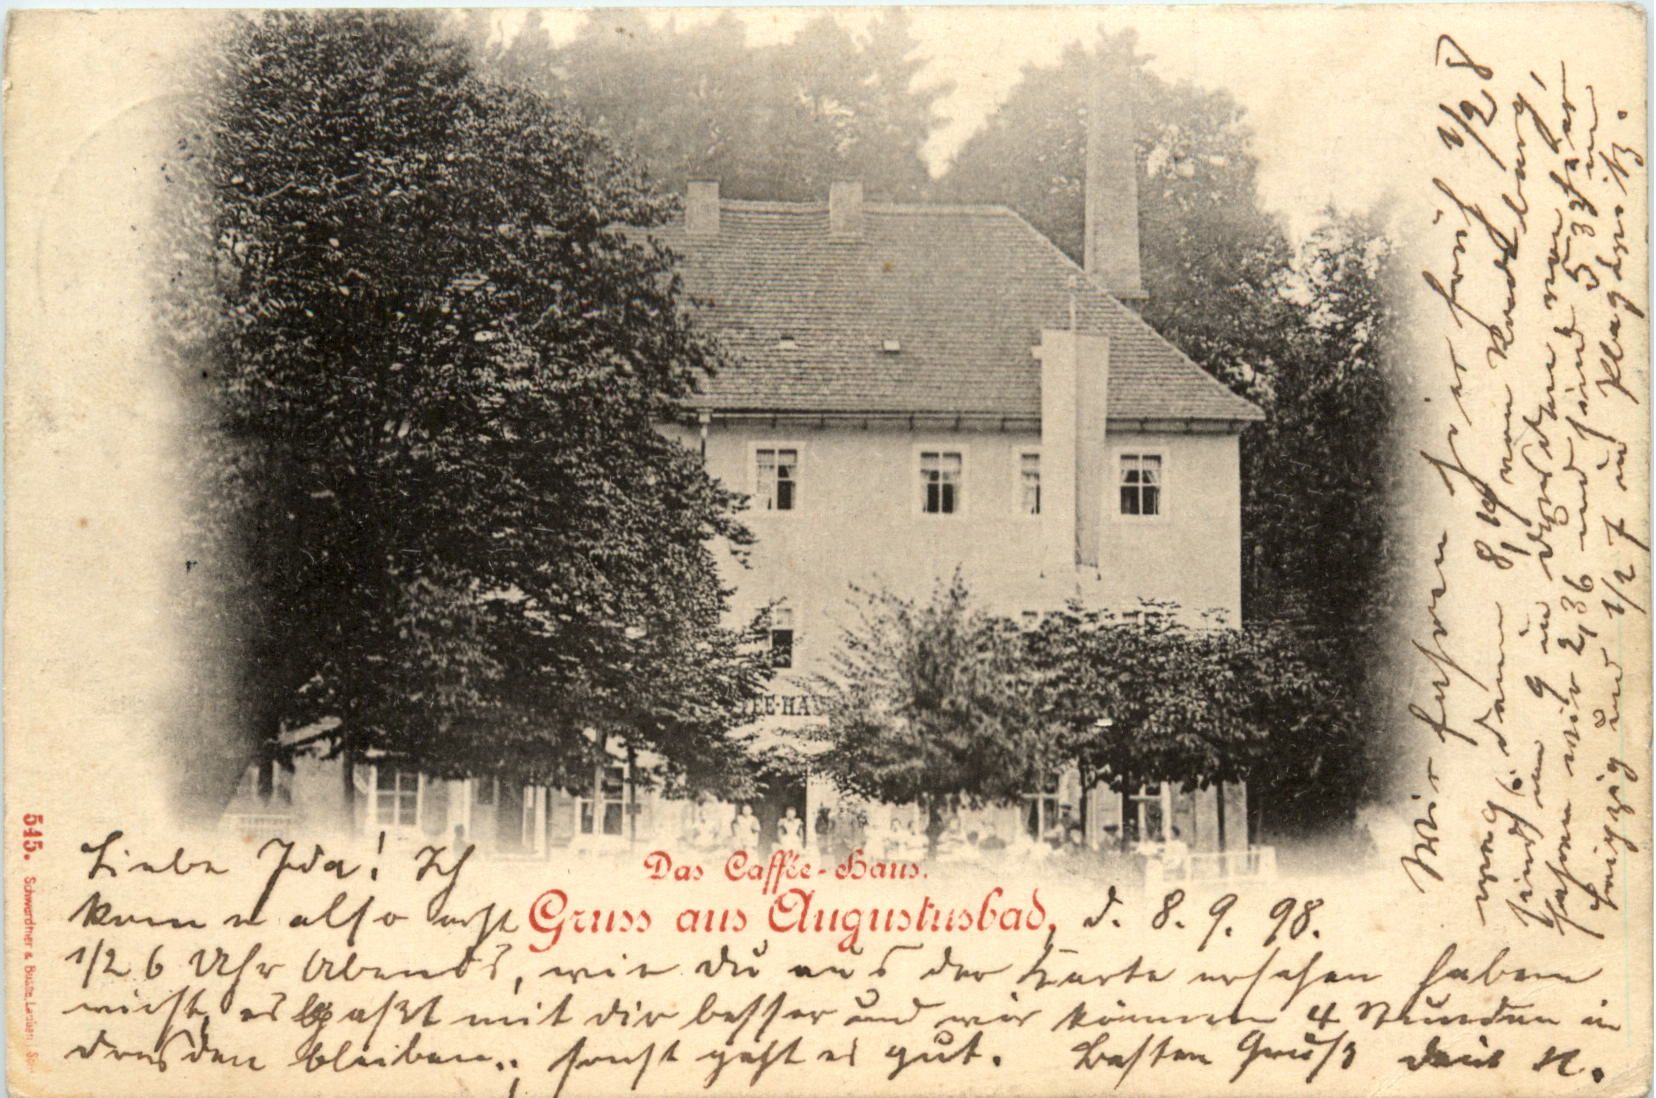 TEE-HAU
Das Caffée-Haus.
Gruss aus Augustusbad,
545. Schwerdtner &
Liebe Ida! Ich
komme also erst d. 8. 9. 98.
1/2 6 Uhr Abends, wie du aus der Karte ersehen haben
wirst, es paßt mit dir besser und wir können 4 Stunden in
Dresden bleiben, sonst geht es gut. Besten Gruß dein A.
Wir fahren hier früh 1/2 8
weg, dann 8,19 von Radeberg,
sind um 9 in Dresden von da
fahren wir 2,36 und sind 5 33 in
Leipzig und 1/2 7 in Plagwitz.